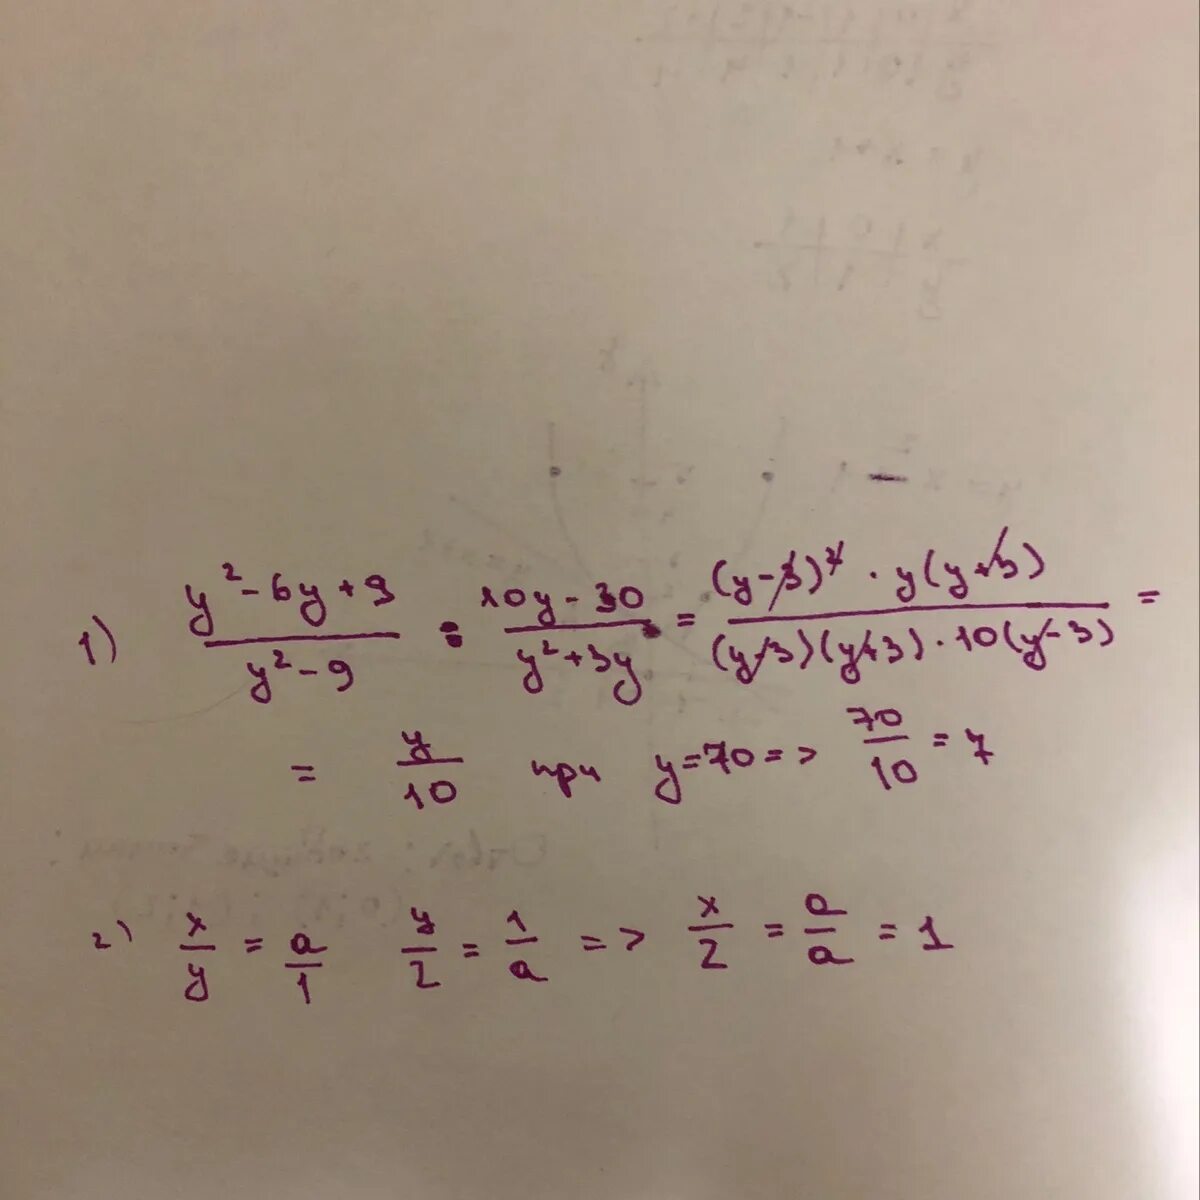 1) (y² - 6y + 9)/(y² - 9) : (10y - 30)/(y² + 3y) = ((y - 3)² · y(y + 3))/((y - 3)(y + 3) · 10(y - 3)) =
= y/10 при y = 70 => 70/10 = 7
2) x/y = a/1 y/2 = 1/a => x/2 = a/a = 1